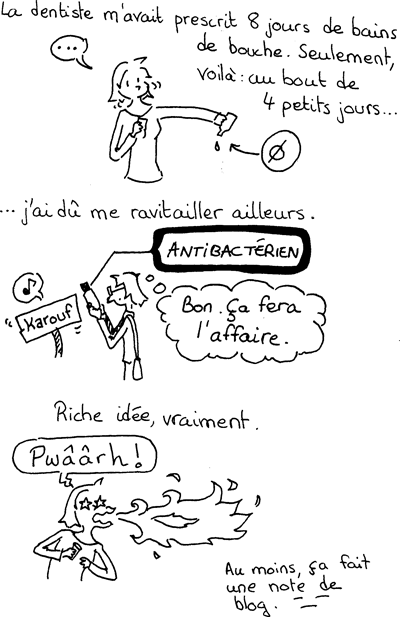 La dentiste m'avait prescrit 8 jours de bains
de bouche. Seulement,
voilà : au bout de
4 petits jours...
...
Ø
... j'ai dû me ravitailler ailleurs.
ANTIBACTÉRIEN
♪
Karouf
Bon. Ça fera
l'affaire.
Riche idée, vraiment.
Pwâârh !
Au moins, ça fait
une note de
blog. -_-